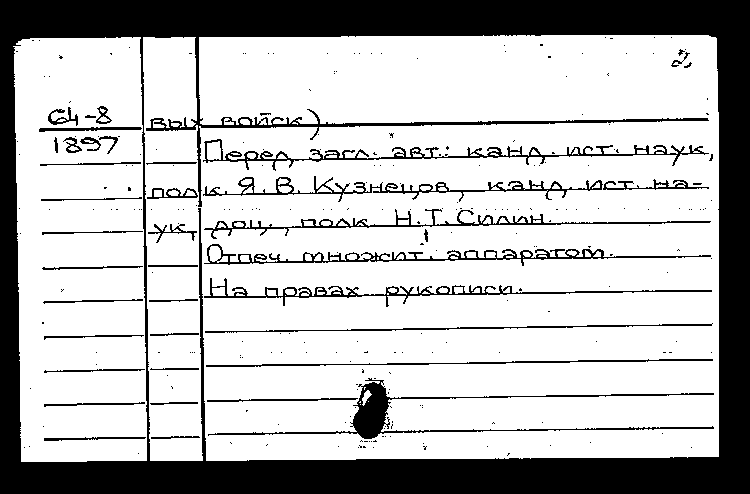 2
64-8 вых войск).
1897 Перед загл. авт.: канд. ист. наук,
полк. Я. В. Кузнецов, канд. ист. на-
ук, доц., полк. Н. Т. Силин.
Отпеч. множит. аппаратом.
На правах рукописи.